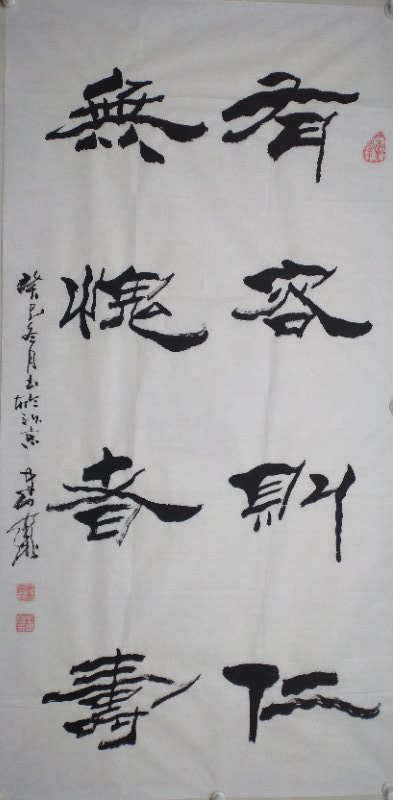 有容則仁
無愧者壽
癸巳冬月書於北京